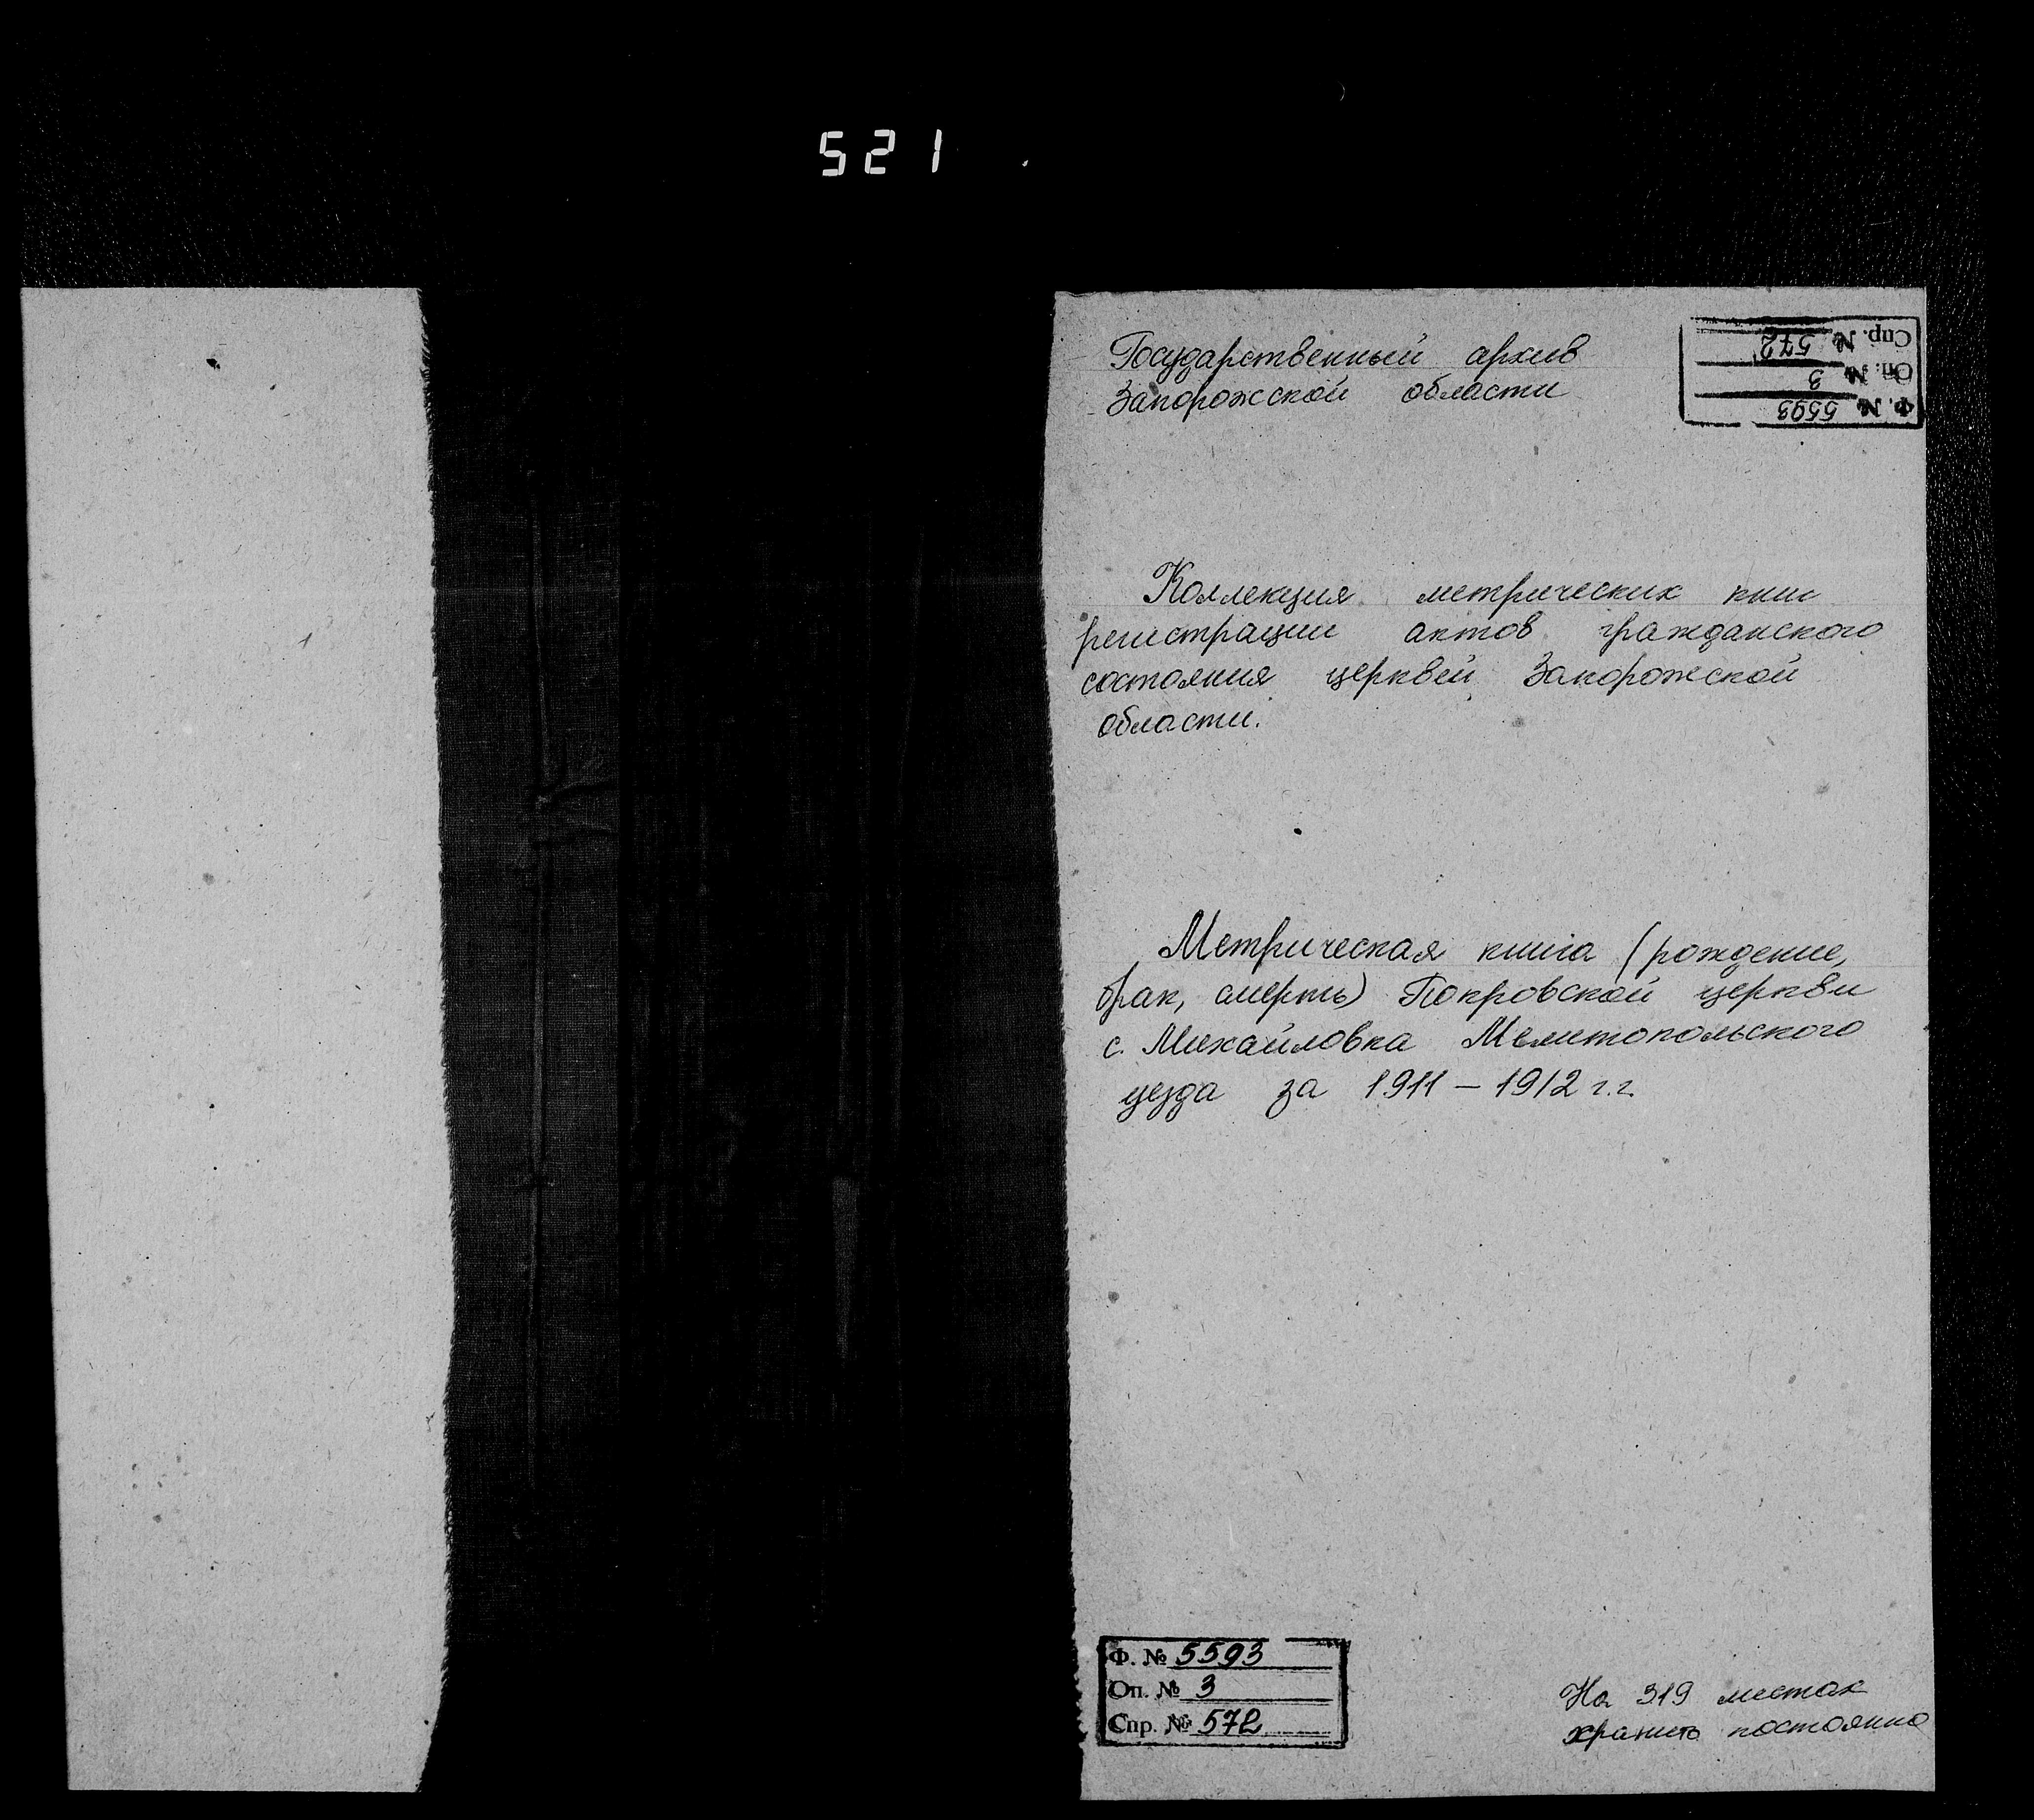 521
Государственный архив
Запорожской области
Спр. № 572
Оп. № 3
Ф. № 5593
Коллекция метрических книг
регистрации актов гражданского
состояния церквей Запорожской
области.
Метрическая книга (рождение,
брак, смерть) Покровской церкви
с. Михайловка Мелитопольского
уезда за 1911 – 1912 г.г.
Ф. № 5593
Оп. № 3
Спр. № 572
На 319 листах
хранить постоянно